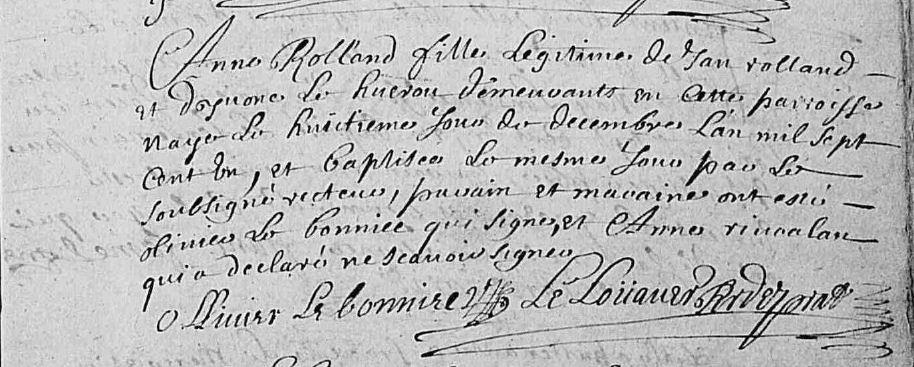 Anne Rolland fille Legitime de Jan rolland
et d'yvone Le huerou demeurants en Cette parroisse
naye Le huictieme Jour de decembre L'an mil sept
Cent un, et baptisée Le mesme Jour par Le
soubsigné recteur, parain et maraine ont esté
olivier Le bonniec qui signe, et Anne rivoalan
qui a declaré ne scavoir signer
Ollivier Le bonniec Le Loüauer Rr de